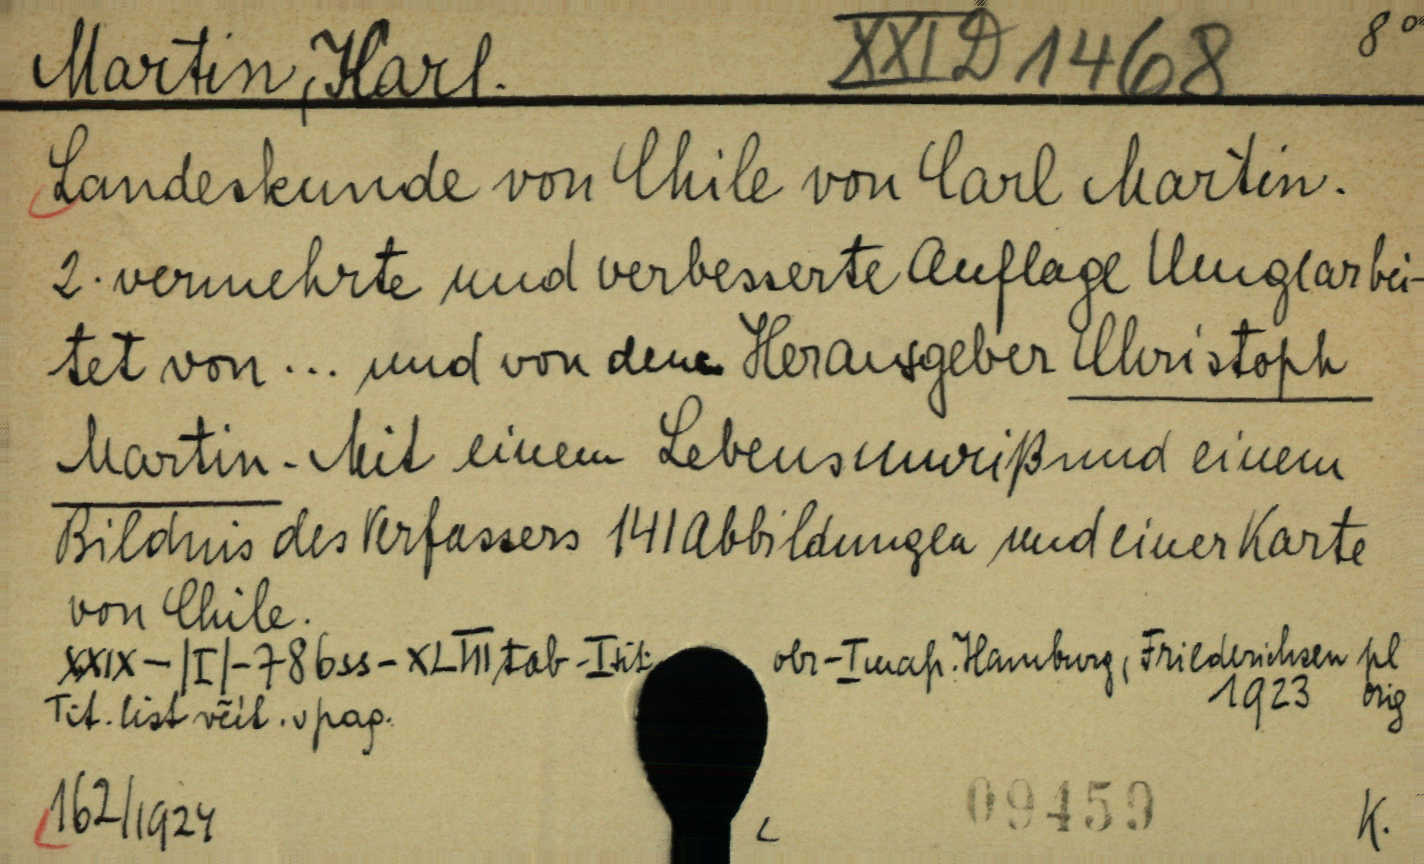 Martin, Karl. XXI D 1468 8°
Landeskunde von Chile von Carl Martin.
2. vermehrte und verbesserte Auflage Umgearbei-
tet von ... und von dem Herausgeber Christoph
Martin - Mit einem Lebensumriß und einem
Bildnis des Verfassers 141 Abbildungen und einer Karte
von Chile.
XXIX - |I| - 786 ss - XLVIII tab - I tit obr - I map. Hamburg, Friederichsen pl
1923 orig
Tit. list včít. v pag.
162/1924 09459 K.